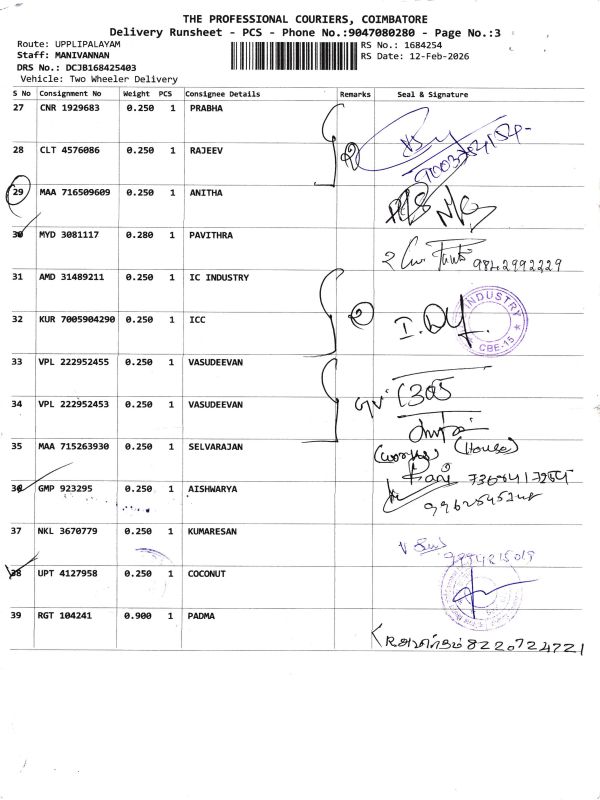 THE PROFESSIONAL COURIERS, COIMBATORE
Delivery Runsheet - PCS - Phone No.:9047080280 - Page No.:3
Route: UPPLIPALAYAM
Staff: MANIVANNAN
DRS No.: DCJB168425403
Vehicle: Two Wheeler Delivery
RS No.: 1684254
RS Date: 12-Feb-2026
S No Consignment No Weight PCS Consignee Details Remarks Seal & Signature
27 CNR 1929683 0.250 1 PRABHA
28 CLT 4576086 0.250 1 RAJEEV
29 MAA 716509609 0.250 1 ANITHA
30 MYD 3081117 0.280 1 PAVITHRA
9842992229
31 AMD 31489211 0.250 1 IC INDUSTRY
32 KUR 7005904290 0.250 1 ICC
2
INDUSTRY
CBE-15
33 VPL 222952455 0.250 1 VASUDEEVAN
34 VPL 222952453 0.250 1 VASUDEEVAN
35 MAA 715263930 0.250 1 SELVARAJAN
(House)
36 GMP 923295 0.250 1 AISHWARYA
37 NKL 3670779 0.250 1 KUMARESAN
38 UPT 4127958 0.250 1 COCONUT
39 RGT 104241 0.900 1 PADMA
8220724721